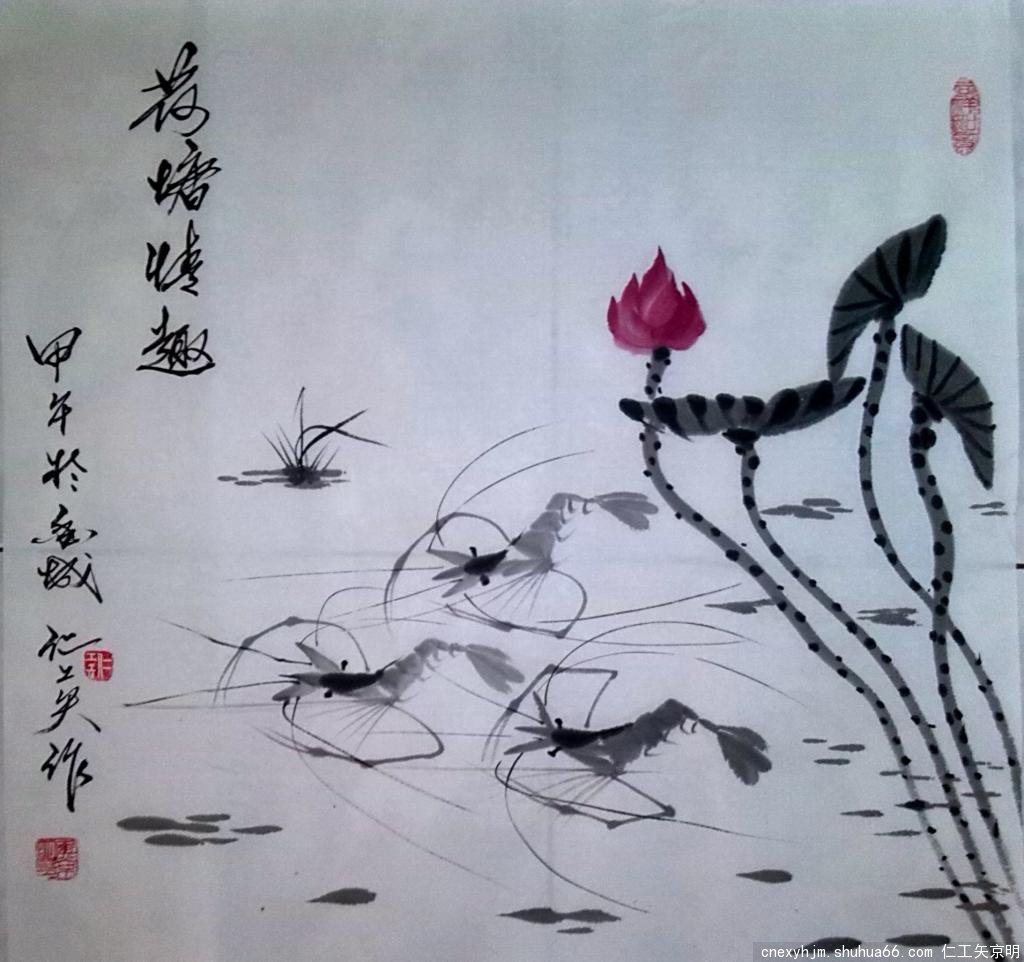 荷塘情趣
甲午於城 仁工矣作
cnexyhjm.shuhua66.com 仁工矣京明